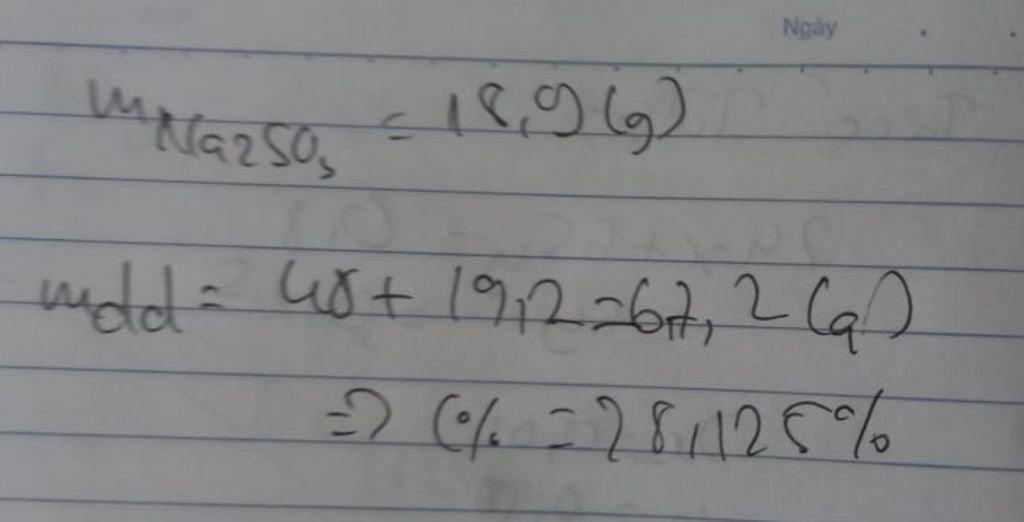 Ngày
mNa2SO3 = 18,9 (g)
mdd = 48 + 19,2 = 67,2 (g)
=> C% = 28,125%